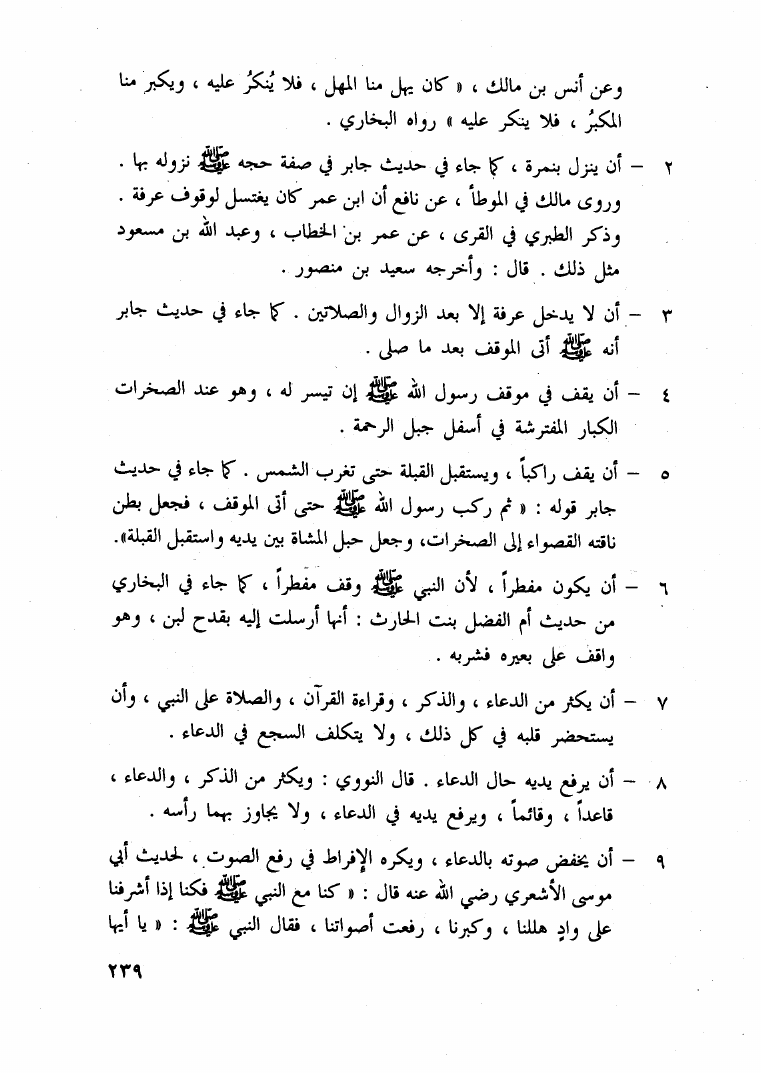 وعن أنس بن مالك ، « كان يهل منا المهل ، فلا يُنكرُ عليه ، ويكبر منا
المكبرُ ، فلا ينكر عليه » رواه البخاري .
٢ – أن ينزل بنمرة ، كما جاء في حديث جابر في صفة حجه ﷺ نزوله بها .
وروى مالك في الموطأ ، عن نافع أن ابن عمر كان يغتسل لوقوف عرفة .
وذكر الطبري في القرى ، عن عمر بن الخطاب ، وعبد الله بن مسعود
مثل ذلك . قال : وأخرجه سعيد بن منصور .
٣ – أن لا يدخل عرفة إلا بعد الزوال والصلاتين . كما جاء في حديث جابر
أنه ﷺ أتى الموقف بعد ما صلى .
٤ – أن يقف في موقف رسول الله ﷺ إن تيسر له ، وهو عند الصخرات
الكبار المفترشة في أسفل جبل الرحمة .
٥ – أن يقف راكباً ، ويستقبل القبلة حتى تغرب الشمس . كما جاء في حديث
جابر قوله : « ثم ركب رسول الله ﷺ حتى أتى الموقف ، فجعل بطن
ناقته القصواء إلى الصخرات، وجعل حبل المشاة بين يديه واستقبل القبلة».
٦ – أن يكون مفطراً ، لأن النبي ﷺ وقف مفطراً ، كما جاء في البخاري
من حديث أم الفضل بنت الحارث : أنها أرسلت إليه بقدح لبن ، وهو
واقف على بعيره فشربه .
٧ – أن يكثر من الدعاء ، والذكر ، وقراءة القرآن ، والصلاة على النبي ، وأن
يستحضر قلبه في كل ذلك ، ولا يتكلف السجع في الدعاء .
٨ – أن يرفع يديه حال الدعاء . قال النووي : ويكثر من الذكر ، والدعاء ،
قاعداً ، وقائماً ، ويرفع يديه في الدعاء ، ولا يجاوز بهما رأسه .
٩ – أن يخفض صوته بالدعاء ، ويكره الإفراط في رفع الصوت ، لحديث أبي
موسى الأشعري رضي الله عنه قال : « كنا مع النبي ﷺ فكنا إذا أشرفنا
على وادٍ هللنا ، وكبرنا ، رفعت أصواتنا ، فقال النبي ﷺ : « يا أيها
٢٣٩